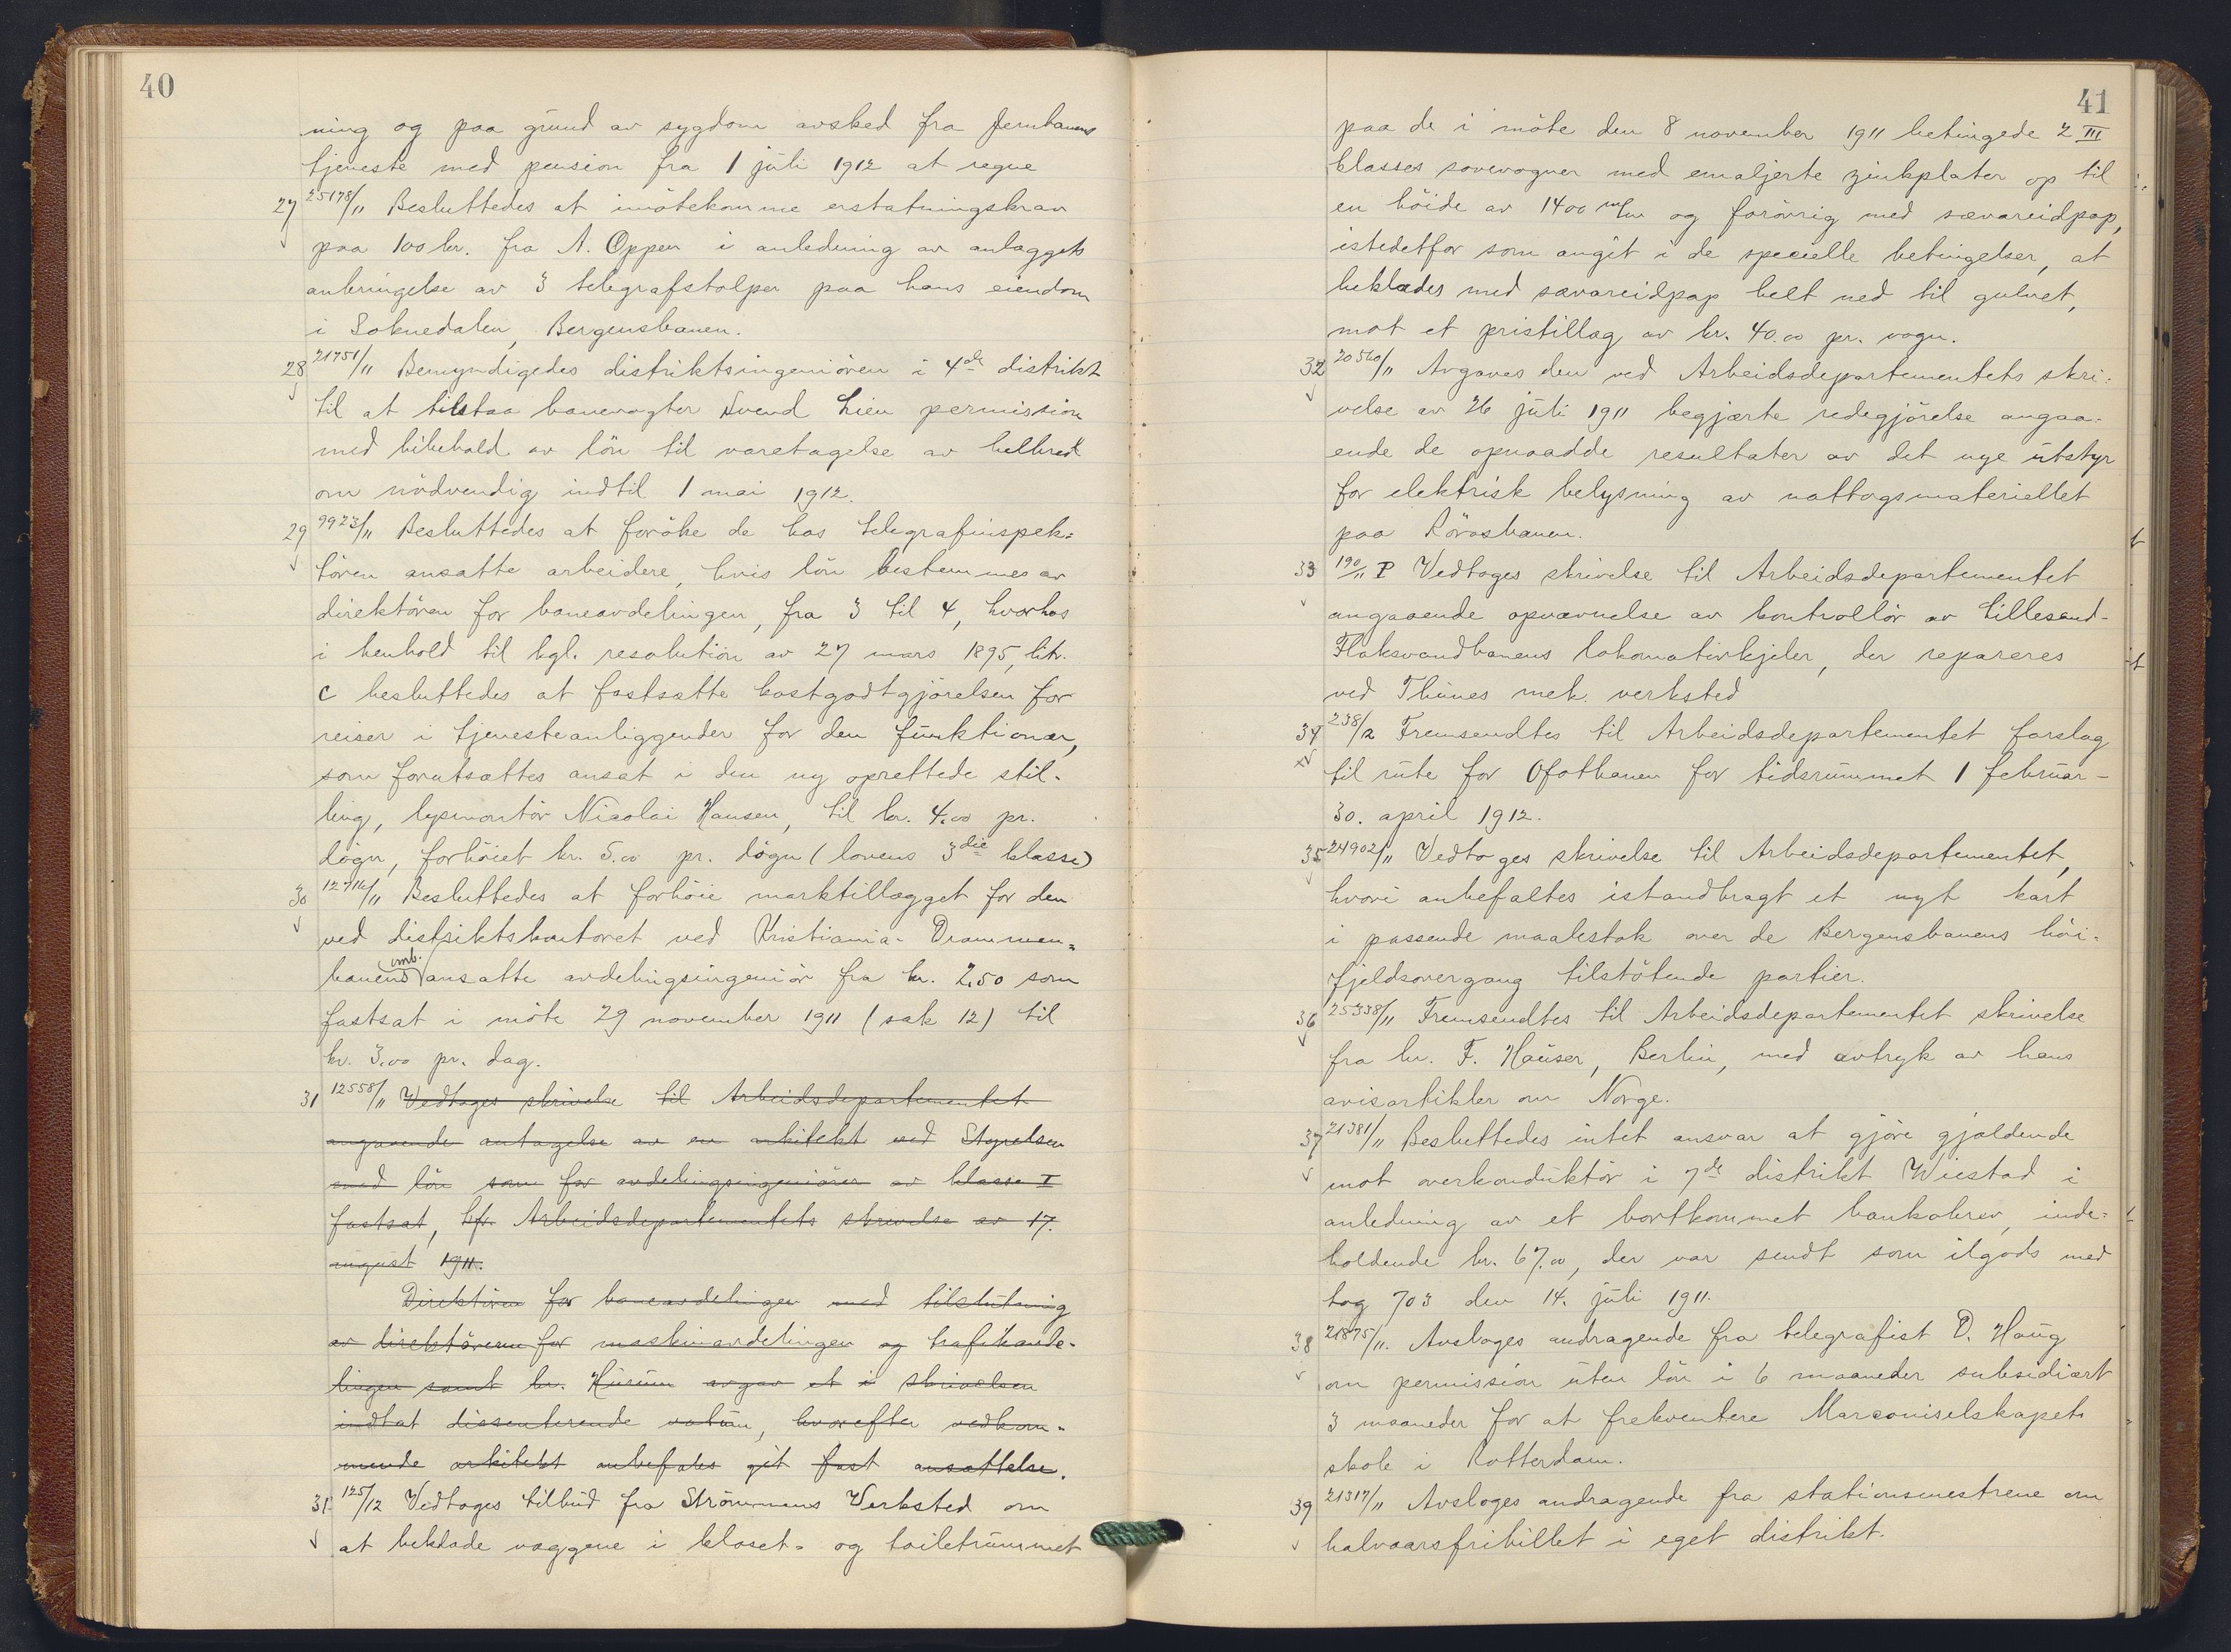 40
ning og paa grund av sygdom avsked fra Jernbanens
tjeneste med pension fra 1 juli 1912 at regne
27 25178/11 Besluttedes at imötekomme erstatningskrav
paa 100 kr. fra A. Oppen i anledning av anlæggets
anbringelse av 3 telegrafstolper paa hans eiendom
i Soknedalen, Bergensbanen.
28 21751/11 Bemyndigedes distriktsingeniören i 4de distrikt
til at tilstaa banevogter Svend Lien permission
med bibehold av lön til varetagelse av helbred
om nödvendig indtil 1 mai 1912.
29 9923/11 Besluttedes at foröke de hos telegrafinspek=
tören ansatte arbeidere, hvis lön bestemmes av
direktören for baneavdelingen, fra 3 til 4, hvorhos
i henhold til kgl. resolution av 27 mars 1895, litr.
c besluttedes at fastsætte kostgodtgjörelsen for
reiser i tjenesteanliggender for den funktionær,
som forutsættes ansat i den ny oprettede stil-
ling, lysmontör Nicolai Hansen, til kr. 4.00 pr.
dögn, forhöiet kr. 5.00 pr. dögn (lovens 3die klasse)
30 12716/11 Besluttedes at forhöie marktillægget for den
ved distriktskontoret ved Kristiania-Drammen=
banens omb. ansatte avdelingsingeniör fra kr. 2.50 som
fastsat i möte 29 november 1911 (sak 12) til
kr. 3.00 pr. dag.
31 12558/11 Vedtoges skrivelse til Arbeidsdepartementet
angaaende antagelse av en arkitekt ved Styrelsen
med lön som for avdelingsingeniörer av klasse I
fastsat, kfr. Arbeidsdepartementets skrivelse av 17.
august 1911.
Direktören for baneavdelingen med tilslutning
av direktörerne for maskinavdelingen og trafikavde-
lingen samt hr. Husum avgav et i skrivelsen
indtat dissenterende votum, hvorefter vedkom-
mende arkitekt anbefales git fast ansættelse.
31. 125/12 Vedtoges tilbud fra Strömmens Verksted om
at beklæde væggene i kloset- og toiletrummet
41
paa de i möte den 8 november 1911 betingede 2 III
klasses sovevogner med emaljerte zinkplater op til
en höide av 1400 m/m og forövrig med sævareidpap,
istedetfor som angit i de specielle betingelser, at
beklædes med sævareidpap helt ned til gulvet,
mot et pristillæg av kr. 40.00 pr. vogn.
32 20560/11 Avgaves den ved Arbeidsdepartementets skri=
velse av 26 juli 1911 begjærte redegjörelse angaa=
ende de opnaadde resultater av det nye utstyr
for elektrisk belysning av nattogsmateriellet
paa Rörosbanen.
33 190/11 P Vedtoges skrivelse til Arbeidsdepartementet
angaaende opnævnelse av kontrollör av Lillesand-
Flaksvandbanens lokomotivkjeler, der repareres
ved Thunes mek. verksted
34 238/12 Fremsendtes til Arbeidsdepartementet forslag
til rute for Ofotbanen for tidsrummet 1 februar -
30. april 1912.
35 24902/11 Vedtoges skrivelse til Arbeidsdepartementet,
hvori anbefaltes istandbragt et nyt kart
i passende maalestok over de Bergensbanens höi=
fjeldsovergang tilstötende partier.
36 25338/11 Fremsendtes til Arbeidsdepartementet skrivelse
fra hr. F. Hauser, Berlin, med avtryk av hans
avisartikler om Norge.
37 21381/11 Besluttedes intet ansvar at gjöre gjældende
mot overkonduktör i 7de distrikt Wiestad i
anledning av et bortkommet bankobrev, inde=
holdende kr. 67.00, der var sendt som ilgods med
tog 703 den 14. juli 1911.
38 21875/11. Avsloges andragende fra telegrafist O. Haug
om permission uten lön i 6 maaneder subsidiært
3 maaneder for at frekventere Marconiselskapets
skole i Rotterdam.
39 21317/11 Avsloges andragende fra stationsmestrene om
halvaarsfribillet i eget distrikt.